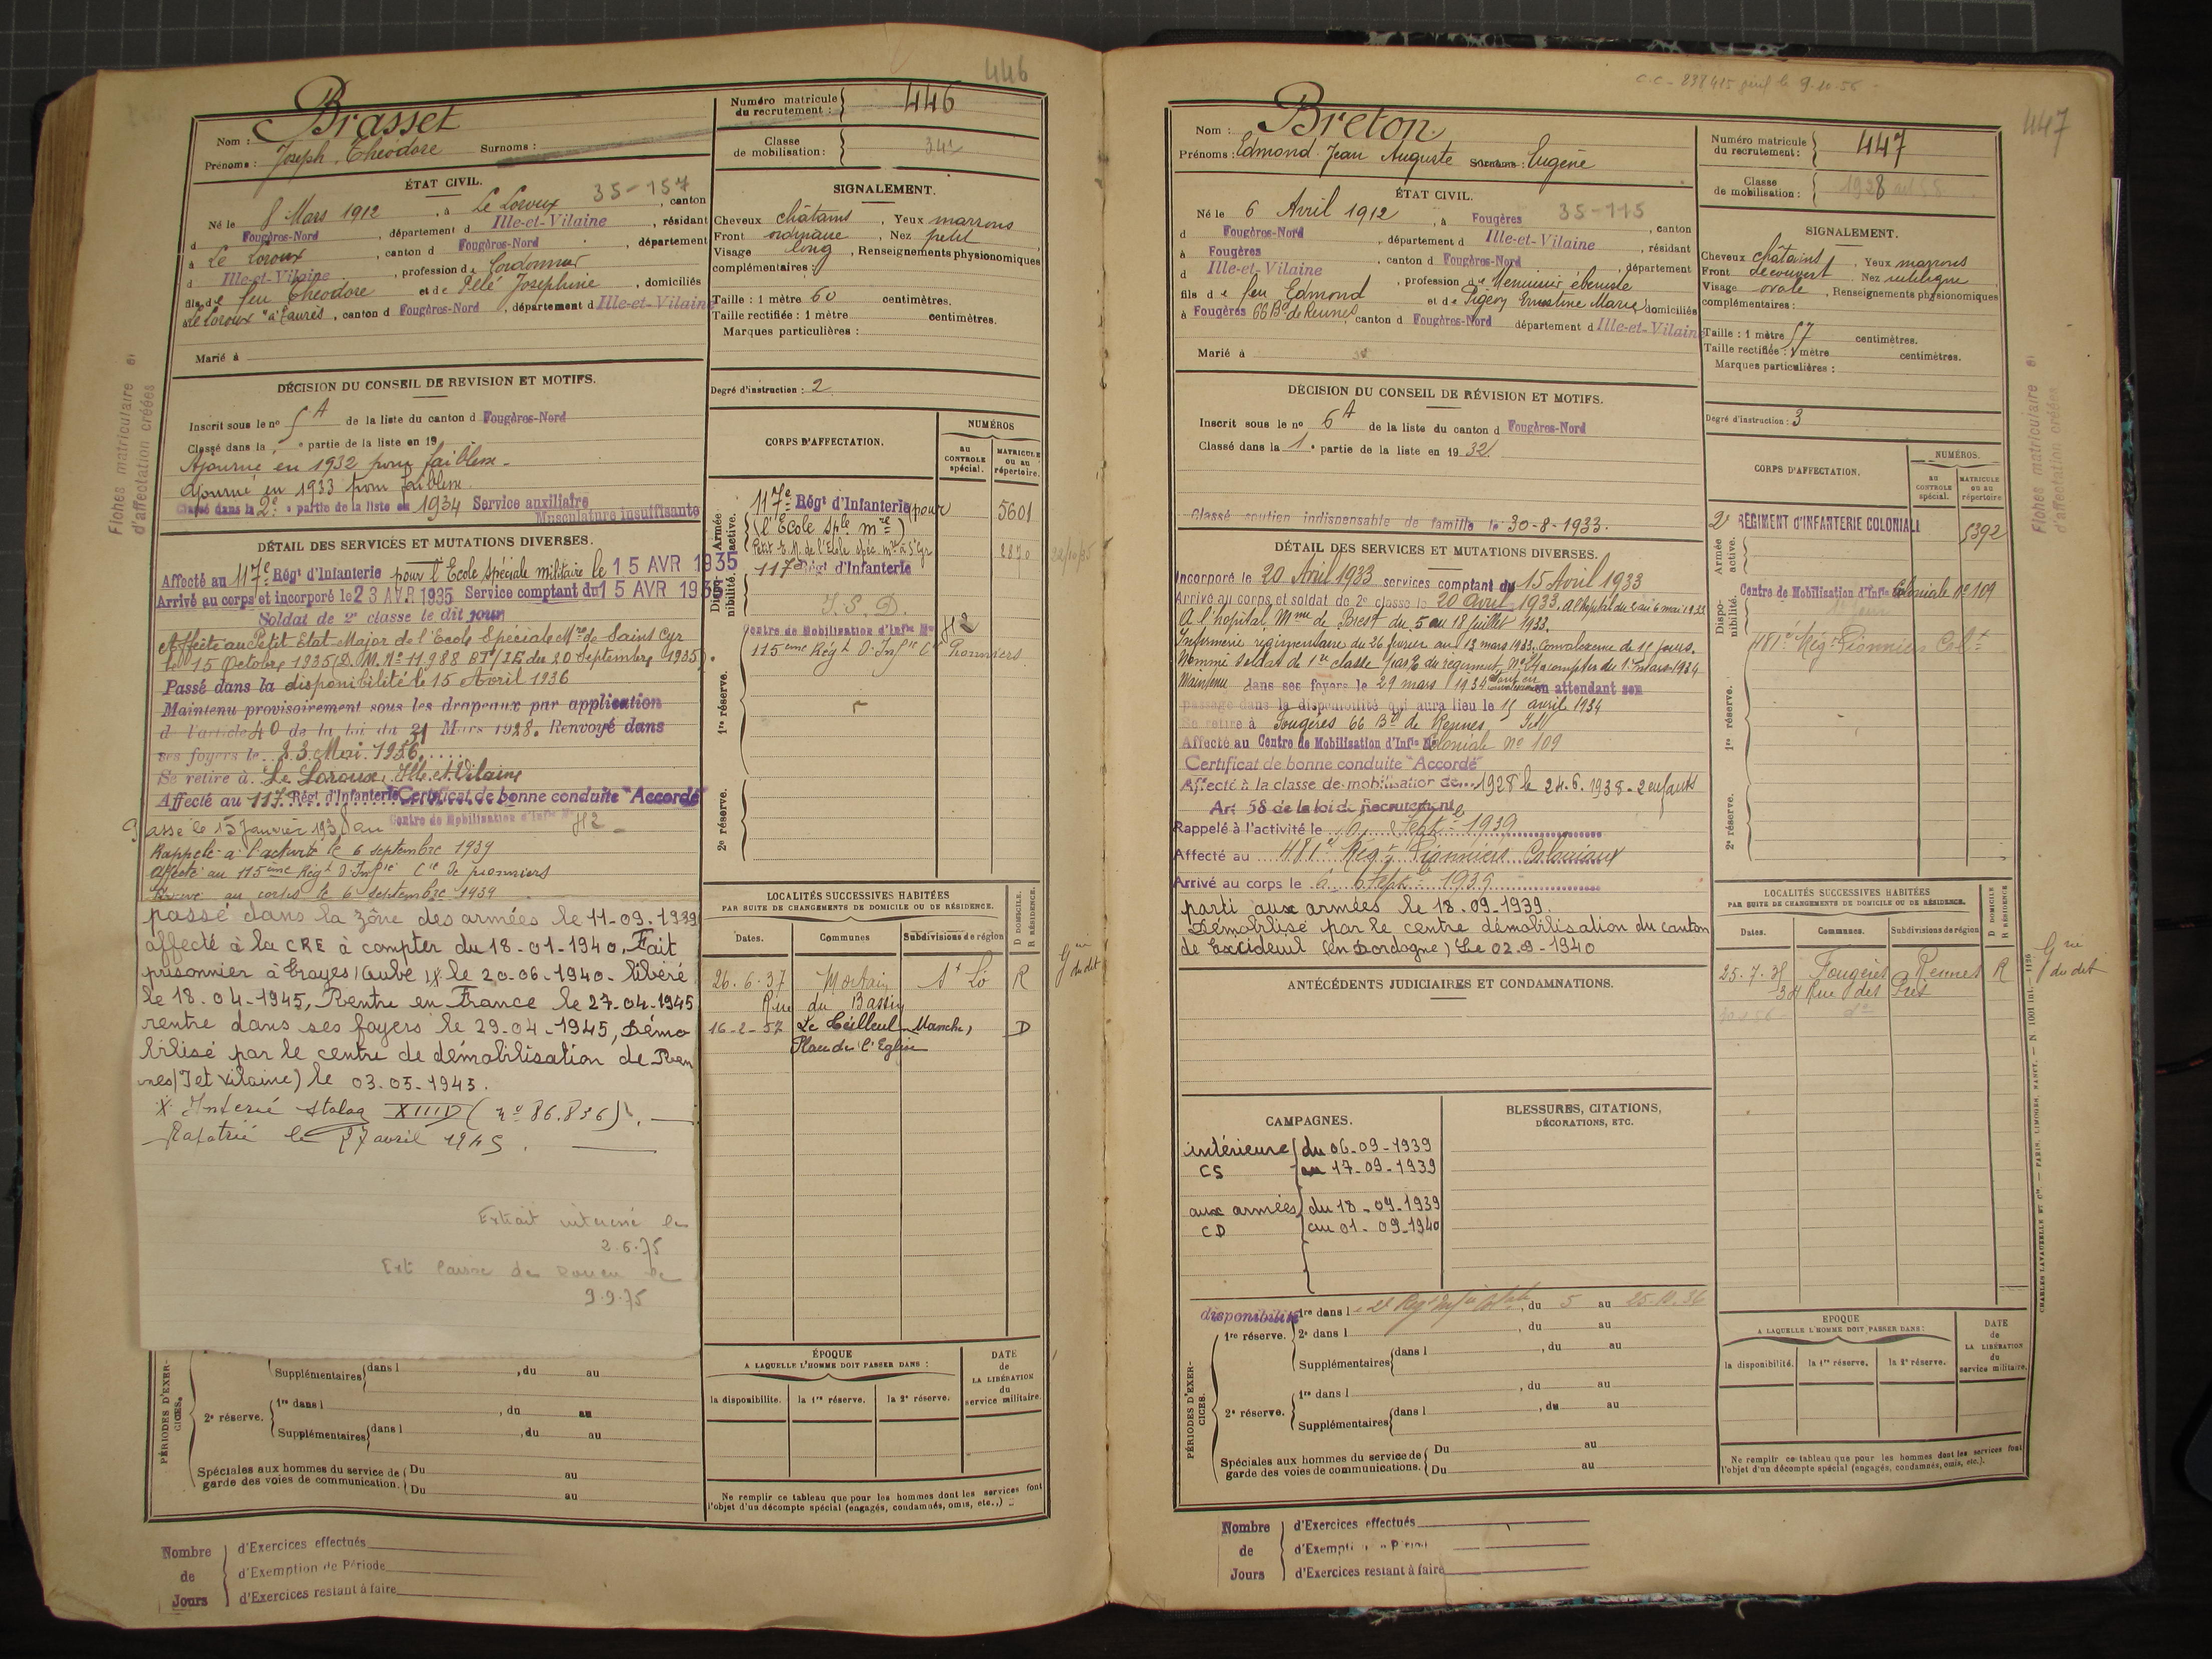 446
Nom : Brasset
Prénoms : Joseph, Théodore Surnoms :
Numéro matricule du recrutement : 446
Classe de mobilisation :
ÉTAT CIVIL.
35-157
Né le 8 Mars 1912, à Le Loroux, canton
d Fougères-Nord, département d Ille-et-Vilaine, résidant
à Le Loroux, canton d Fougères-Nord, département
d Ille-et-Vilaine, profession de Cordonnier
fils de feu Théodore et de Pelé Joséphine, domiciliés
à Le Loroux, canton d Fougères-Nord, département d Ille-et-Vilaine
Marié à
SIGNALEMENT.
Cheveux châtains, Yeux marrons
Front ordinaire, Nez petit
Visage long, Renseignements physionomiques
complémentaires :
Taille : 1 mètre 60 centimètres.
Taille rectifiée : 1 mètre centimètres.
Marques particulières :
Degré d'instruction : 2
Fiches matriculaire et
d'affectation créées
DÉCISION DU CONSEIL DE REVISION ET MOTIFS.
Inscrit sous le nº 5 A de la liste du canton d Fougères-Nord
Classé dans la e partie de la liste en 19
Ajourné en 1932 pour faiblesse
Ajourné en 1933 pour faiblesse
Classé dans la 2e partie de la liste en 1934 Service auxiliaire
Musculature insuffisante
DÉTAIL DES SERVICES ET MUTATIONS DIVERSES.
Affecté au 117e Régt d'Infanterie pour l'Ecole Spéciale militaire le 15 AVR 1935
Arrivé au corps et incorporé le 23 AVR 1935 Service comptant du 15 AVR 1935
Soldat de 2e classe le dit jour
Affecté au Petit Etat-Major de l'Ecole Spéciale Mre de Saint Cyr
le 15 Octobre 1935 (D. M. Nº 11.988 BT/IE du 20 septembre 1935).
Passé dans la disponibilité le 15 Avril 1936
Maintenu provisoirement sous les drapeaux par application
d l'article 40 de la loi du 31 Mars 1928. Renvoyé dans
ses foyers le 23 Mai 1936
Se retire à Le Loroux, Ille et Vilaine
Affecté au 117e Régt d'Infanterie Certificat de bonne conduite "Accordé"
Passé le 15 Janvier 193 au Centre de Mobilisation d'Infie Nº 42
Rappelé à l'activité le 6 septembre 1939
Affecté au 115ème Régt D'Infie Cie de pionniers
Arrivé au corps le 6 septembre 1939
passé dans la zône des armées le 11-09-1939
affecté à la CRE à compter du 18-01-1940, Fait
prisonnier à Troyes (Aube) X le 20-06-1940 - libéré
le 18-04-1945, Rentre en France le 27-04-1945
rentre dans ses foyers le 29-04-1945, Démo
bilisé par le centre de démobilisation de Ren
nes (I et Vilaine) le 03-05-1945.
X Interné stalag XIIID (nº 86.836).
Rapatrié le 27 avril 1945.
Extrait interné le
2.6.75
Ext. Caisse de Rouen le
9.9.75
CORPS D'AFFECTATION.
NUMÉROS
AU CONTROLE spécial.
MATRICULE OU AU répertoire.
Armée active.
117e Régt d'Infanterie (pour 5601
(l'Ecole sple mre)
Petit E.M. de l'Ecole spéc. mre à St Cyr 2870 22/10/35
Disponibilité.
117e Régt d'Infanterie
I.S.D.
Centre de Mobilisation d'Infie Nº 42
115ème Régt D'Infie Cie Pionniers
1re réserve.
2e réserve.
LOCALITÉS SUCCESSIVES HABITÉES
PAR SUITE DE CHANGEMENTS DE DOMICILE OU DE RÉSIDENCE.
D DOMICILE. R RÉSIDENCE.
Dates. Communes Subdivisions de région
26.6.37 Mortain St Lô R
Rue du Bassin
16-2-57 Le Teilleul Manche, D
Place de l'Eglise
ÉPOQUE
A LAQUELLE L'HOMME DOIT PASSER DANS :
la disponibilité. la 1re réserve. la 2e réserve.
DATE de LA LIBÉRATION du service militaire.
Ne remplir ce tableau que pour les hommes dont les services font
l'objet d'un décompte spécial (engagés, condamnés, omis, etc.,)
PÉRIODES D'EXERCICES.
Supplémentaires dans l , du au
2e réserve. 1re dans l , du au
Supplémentaires dans l , du au
Spéciales aux hommes du service de garde des voies de communication. Du au
Du au
Nombre de Jours
d'Exercices effectués
d'Exemption de Période
d'Exercices restant à faire
447
Nom : Breton
Prénoms : Edmond Jean Auguste Surnoms : Eugène
Numéro matricule du recrutement : 447
Classe de mobilisation : 1928
ÉTAT CIVIL.
35-115
Né le 6 Avril 1912, à Fougères, canton
d Fougères-Nord, département d Ille-et-Vilaine, résidant
à Fougères, canton d Fougères-Nord, département
d Ille-et-Vilaine, profession de Menuisier ébéniste
fils de feu Edmond et de Pigeon Ernestine Marie, domiciliés
à Fougères 66 Bd de Rennes, canton d Fougères-Nord département d Ille-et-Vilaine
Marié à
SIGNALEMENT.
Cheveux châtains, Yeux marrons
Front découvert, Nez rectiligne
Visage ovale, Renseignements physionomiques
complémentaires :
Taille : 1 mètre 57 centimètres.
Taille rectifiée : 1 mètre centimètres.
Marques particulières :
Degré d'instruction : 3
Fiches matriculaire et
d'affectation créées
DÉCISION DU CONSEIL DE RÉVISION ET MOTIFS.
Inscrit sous le nº 6 A de la liste du canton d Fougères-Nord
Classé dans la 1e partie de la liste en 1932
Classé soutien indispensable de famille le 30-8-1933.
DÉTAIL DES SERVICES ET MUTATIONS DIVERSES.
Incorporé le 20 Avril 1933 services comptant du 15 Avril 1933
Arrivé au corps et soldat de 2e classe le 20 Avril 1933. A l'hôpital du 2 au 6 mai 1933
A l'hôpital Mme de Brest du 5 au 18 juillet 1933.
Infirmerie régimentaire du 26 février au 13 mars 1933. Convalescence de 15 jours.
Nommé soldat de 1re classe
Maintenu dans ses foyers le 29 mars 1934 en attendant son
passage dans la disponibilité qui aura lieu le 15 avril 1934
Se retire à Fougères 66 Bd de Rennes, I et V
Affecté au Centre de Mobilisation d'Infie Coloniale nº 109
Certificat de bonne conduite "Accordé"
Affecté à la classe de mobilisation de 1928 le 24.6.1938 - 2 enfants
Art 58 de la loi de Recrutement
Rappelé à l'activité le 6 Septbre 1939
Affecté au 481e Régt Pionniers Coloniaux
Arrivé au corps le 6 Septbre 1939
parti aux armées le 18.09.1939.
Démobilisé par le centre démobilisation du canton
de Excideuil (en Dordogne) Le 02-9-1940
ANTÉCÉDENTS JUDICIAIRES ET CONDAMNATIONS.
CAMPAGNES.
intérieure du 06-09-1939
CS au 17-09-1939
aux armées du 18-09-1939
CD au 01-09-1940
BLESSURES, CITATIONS,
DÉCORATIONS, ETC.
CORPS D'AFFECTATION.
NUMÉROS.
AU CONTROLE spécial.
MATRICULE OU AU répertoire
Armée active.
2e RÉGIMENT D'INFANTERIE COLONIALE 5392
Disponibilité.
Centre de Mobilisation d'Infie Coloniale Nº 109
481e Régt Pionniers Colx
1re réserve.
2e réserve.
LOCALITÉS SUCCESSIVES HABITÉES
PAR SUITE DE CHANGEMENTS DE DOMICILE OU DE RÉSIDENCE.
D DOMICILE R RÉSIDENCE
Dates. Communes. Subdivisions de région
Fougères Rennes R
Rue des Prés
PÉRIODES D'EXERCICES.
disponibilité
1re réserve. 1re dans l , du 5 au 25-10-36
2e dans l , du au
Supplémentaires dans l , du au
2e réserve. 1re dans l , du au
Supplémentaires dans l , du au
Spéciales aux hommes du service de garde des voies de communications. Du au
Du au
EPOQUE
A LAQUELLE L'HOMME DOIT PASSER DANS :
la disponibilité. la 1re réserve. la 2e réserve.
DATE de LA LIBÉRATION du service militaire.
Ne remplir ce tableau que pour les hommes dont les services font
l'objet d'un décompte spécial (engagés, condamnés, omis, etc.).
CHARLES LAVAUZELLE ET Cie. — PARIS, LIMOGES, NANCY.
Nombre de Jours
d'Exercices effectués
d'Exemption de Période
d'Exercices restant à faire